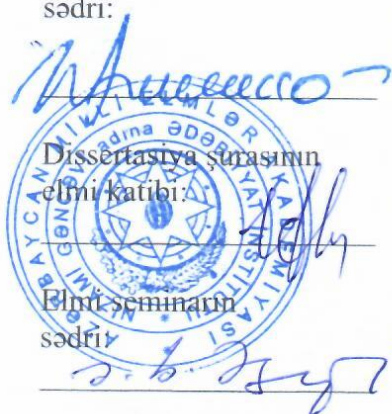 sədri:
Dissertasiya şurasının
elmi katibi:
Elmi seminarın
sədri:
AZƏRBAYCAN MİLLİ ELMLƏR AKADEMİYASI
NİZAMİ GƏNCƏVİ adına ƏDƏBİYYAT İNSTİTUTU